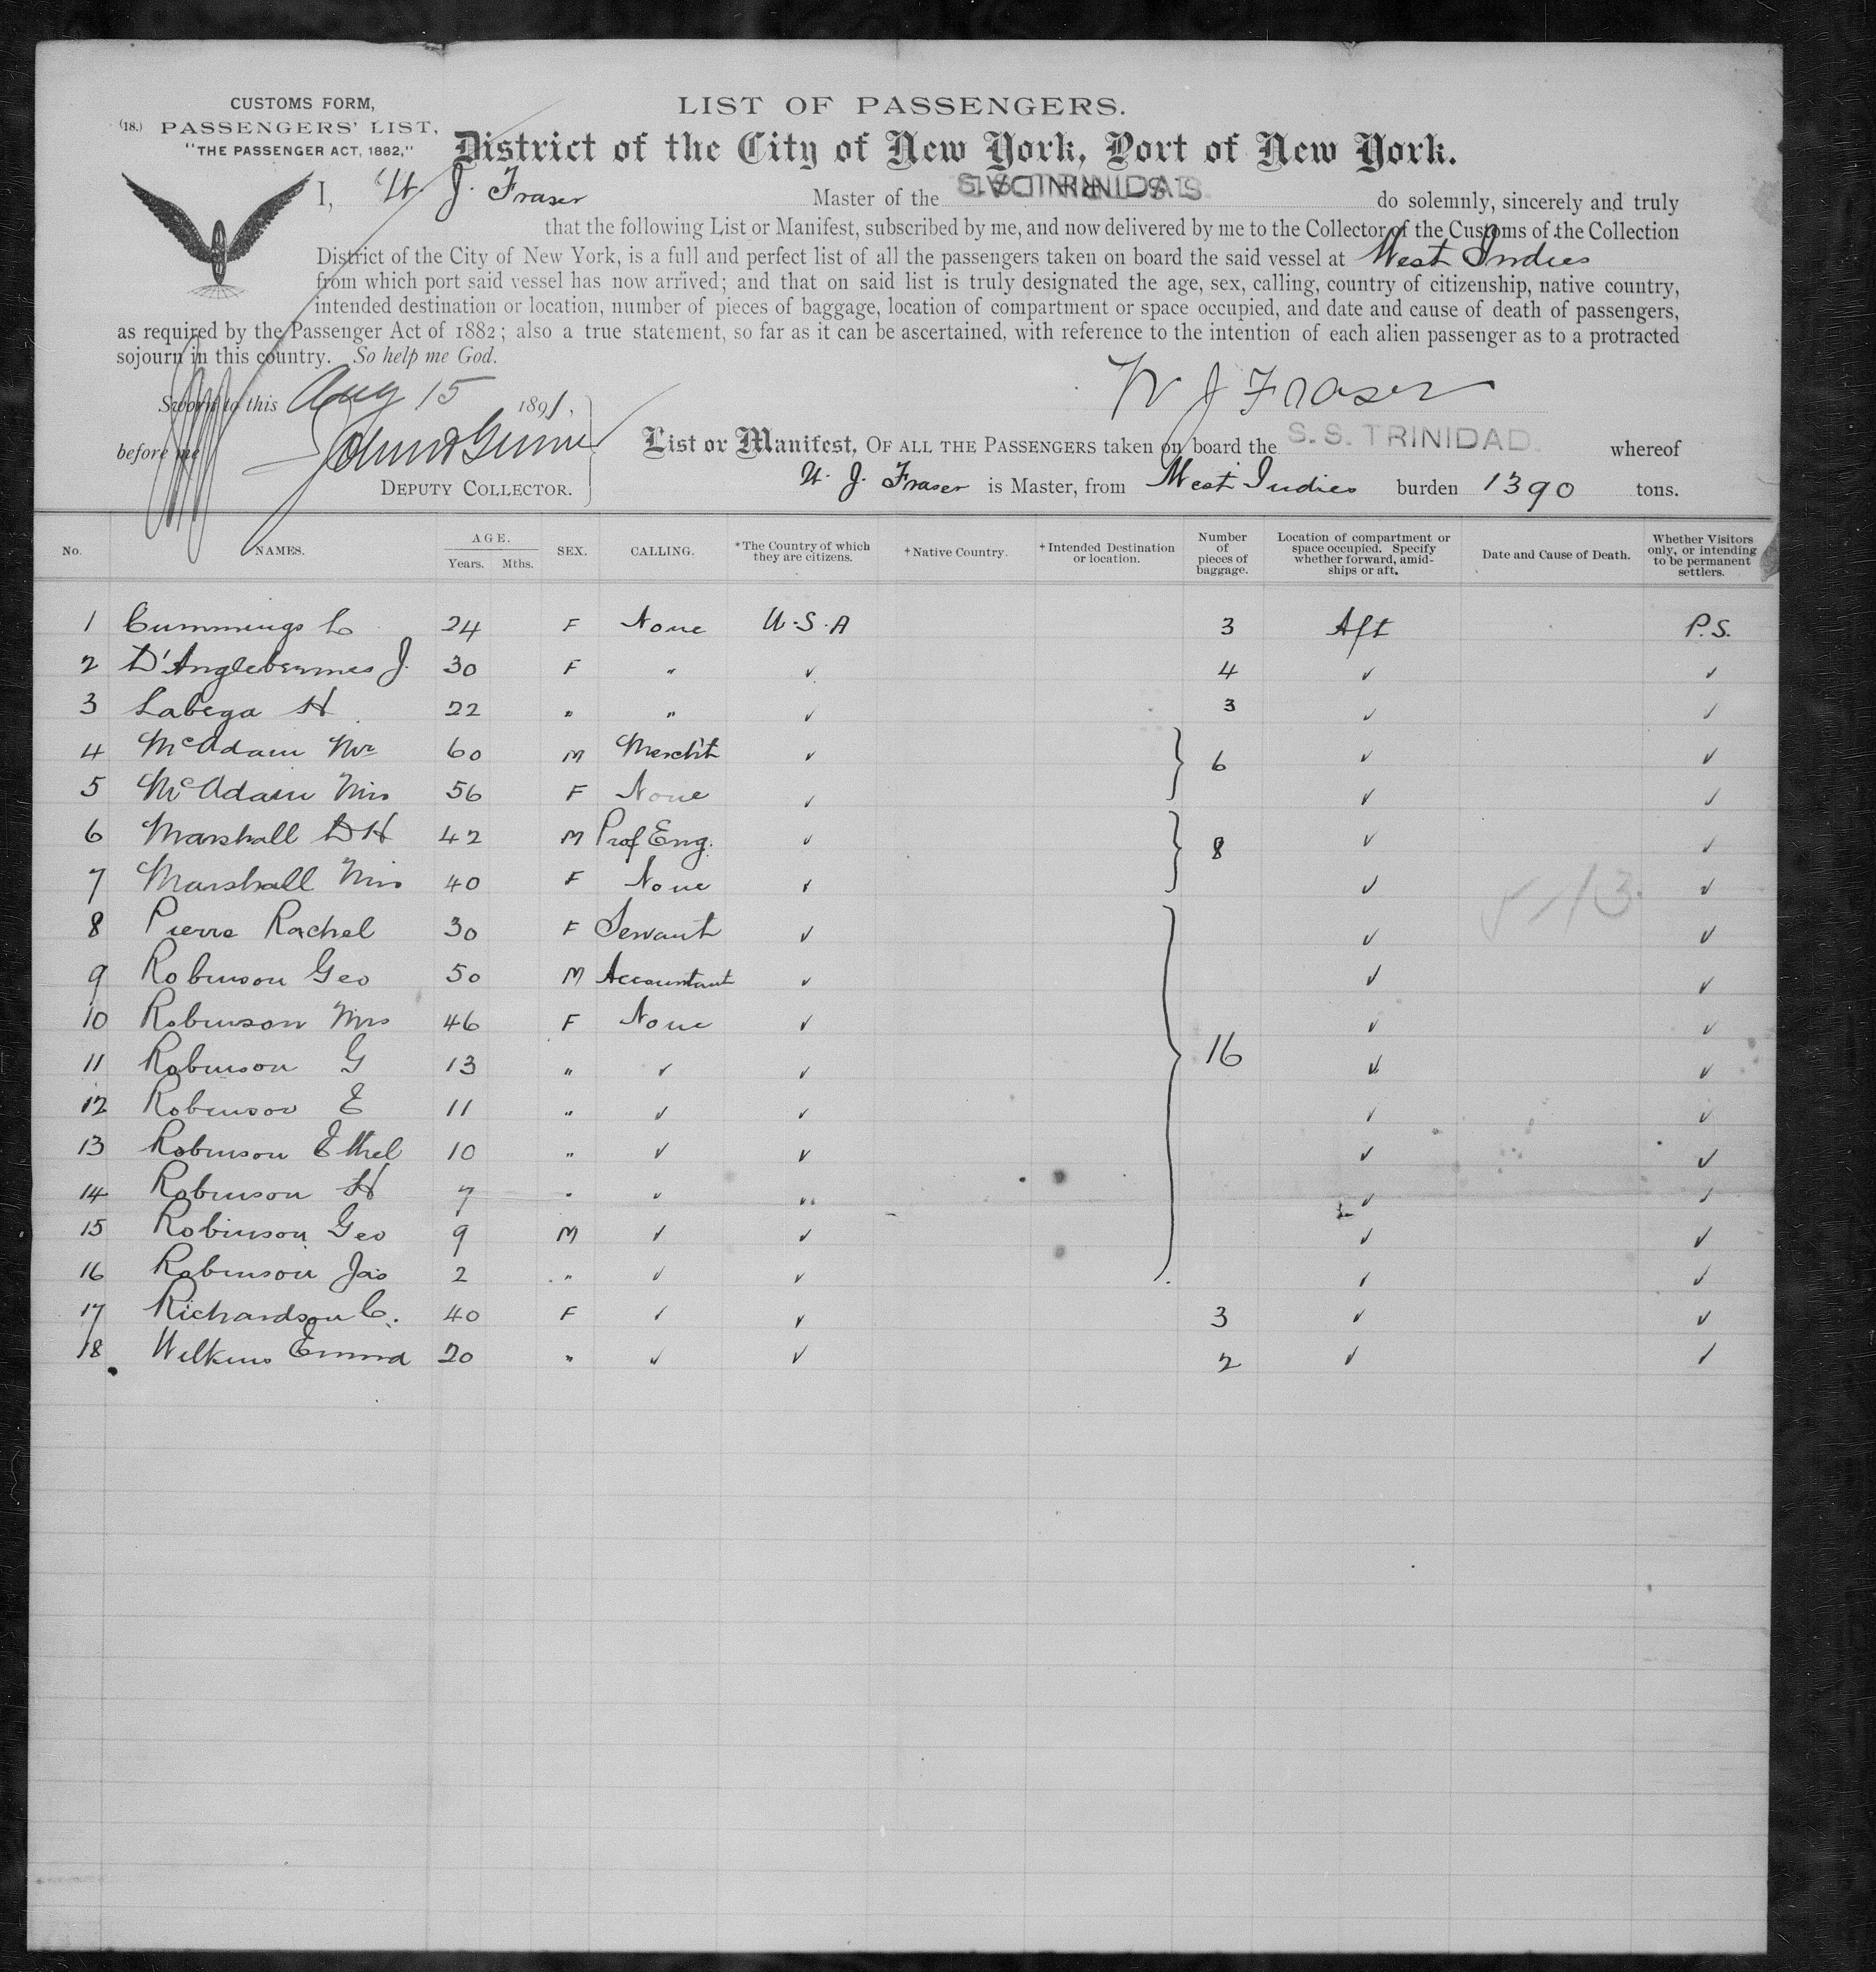 CUSTOMS FORM,
(18.) PASSENGERS' LIST,
"THE PASSENGER ACT, 1882,"
LIST OF PASSENGERS.
District of the City of New York, Port of New York.
I, W. J. Fraser Master of the S.S. TRINIDAD do solemnly, sincerely and truly
that the following List or Manifest, subscribed by me, and now delivered by me to the Collector of the Customs of the Collection
District of the City of New York, is a full and perfect list of all the passengers taken on board the said vessel at West Indies
from which port said vessel has now arrived; and that on said list is truly designated the age, sex, calling, country of citizenship, native country,
intended destination or location, number of pieces of baggage, location of compartment or space occupied, and date and cause of death of passengers,
as required by the Passenger Act of 1882; also a true statement, so far as it can be ascertained, with reference to the intention of each alien passenger as to a protracted
sojourn in this country. So help me God.
W J Fraser
Sworn to this Aug 15 1891,
before me
DEPUTY COLLECTOR.
List or Manifest, OF ALL THE PASSENGERS taken on board the S. S. TRINIDAD. whereof
W. J. Fraser is Master, from West Indies burden 1390 tons.
No. NAMES. AGE. Years. Mths. SEX. CALLING. *The Country of which they are citizens. †Native Country. †Intended Destination or location. Number of pieces of baggage. Location of compartment or space occupied. Specify whether forward, amidships or aft. Date and Cause of Death. Whether Visitors only, or intending to be permanent settlers.
1 Cummings C 24 F None U.S.A 3 Aft P.S.
2 D'Anglebermes J. 30 F " ✓ 4 ✓ ✓
3 Labega H 22 " " ✓ 3 ✓ ✓
4 McAdam Mr 60 M Merch't ✓ 6 ✓ ✓
5 McAdam Mrs 56 F None ✓ ✓ ✓
6 Marshall D H 42 M Prof Eng. ✓ 8 ✓ ✓
7 Marshall Mrs 40 F None ✓ ✓ ✓
8 Pierre Rachel 30 F Servant ✓ ✓ ✓
9 Robinson Geo 50 M Accountant ✓ ✓ ✓
10 Robinson Mrs 46 F None ✓ ✓ ✓
11 Robinson G 13 " ✓ ✓ 16 ✓ ✓
12 Robinson E 11 " ✓ ✓ ✓ ✓
13 Robinson Ethel 10 " ✓ ✓ ✓ ✓
14 Robinson H 7 " ✓ " ✓ ✓
15 Robinson Geo 9 M ✓ ✓ ✓ ✓
16 Robinson Jas 2 " ✓ ✓ ✓ ✓
17 Richardson C. 40 F ✓ ✓ 3 ✓ ✓
18 Wilkins Emma 20 " ✓ ✓ 2 ✓ ✓